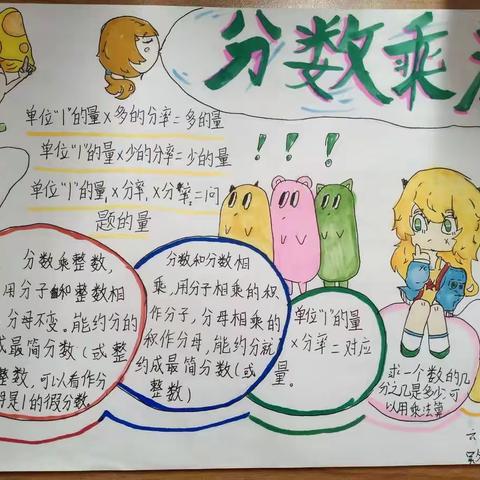 分数乘法
单位“1”的量×多的分率=多的量
单位“1”的量×少的分率=少的量
单位“1”的量×分率×分率=问
题的量
!!!
分数乘整数,
用分子和整数相
,分母不变。能约分的
成最简分数(或整
整数,可以看作分
是1的假分数。
分数和分数相
乘,用分子相乘的积
作分子,分母相乘的
积作分母,能约分就
约成最简分数(或
整数)
单位“1”的量
×分率=对应
量。
求一个数的几
分之几是多少,可
以用乘法算
六